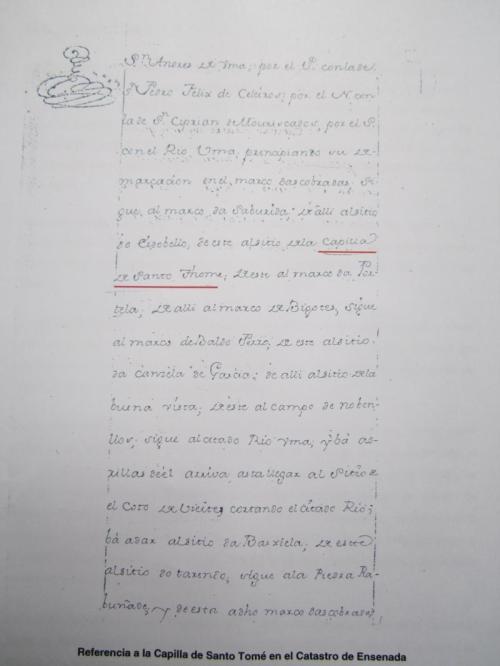 Sⁿ Andres de Uma; por el P. con la de
Sⁿ Pedro Felix de Celeiros; por el N. con
la de Sⁿ Ciprian de Mouriscados, por el P.
con el Rio Uma, principiando su de
marcacion en el marco das cobradas, si
gue, al marco da Saburida: de alli al sitio
do de este al sitio de la Capilla
de Santo Thome; de este al marco da Por
tela; de alli al marco de Bigotes, sigue
al marco de Baldo Perro; de este al sitio
da Canzela de Garcia; de alli al sitio de la
buena vista; de este al campo de noben
llos; sigue al citado Rio Uma; y bá as
rillas de él arriva asta llegar al Sitio
el Coto de Vieites cortando el citado Rio;
bá adar al sitio da Barxiela; de este
al sitio do tarendo, sigue a la Piedra Ra
buñade; y de esta adho marco das cobradas
Referencia a la Capilla de Santo Tomé en el Catastro de Ensenada